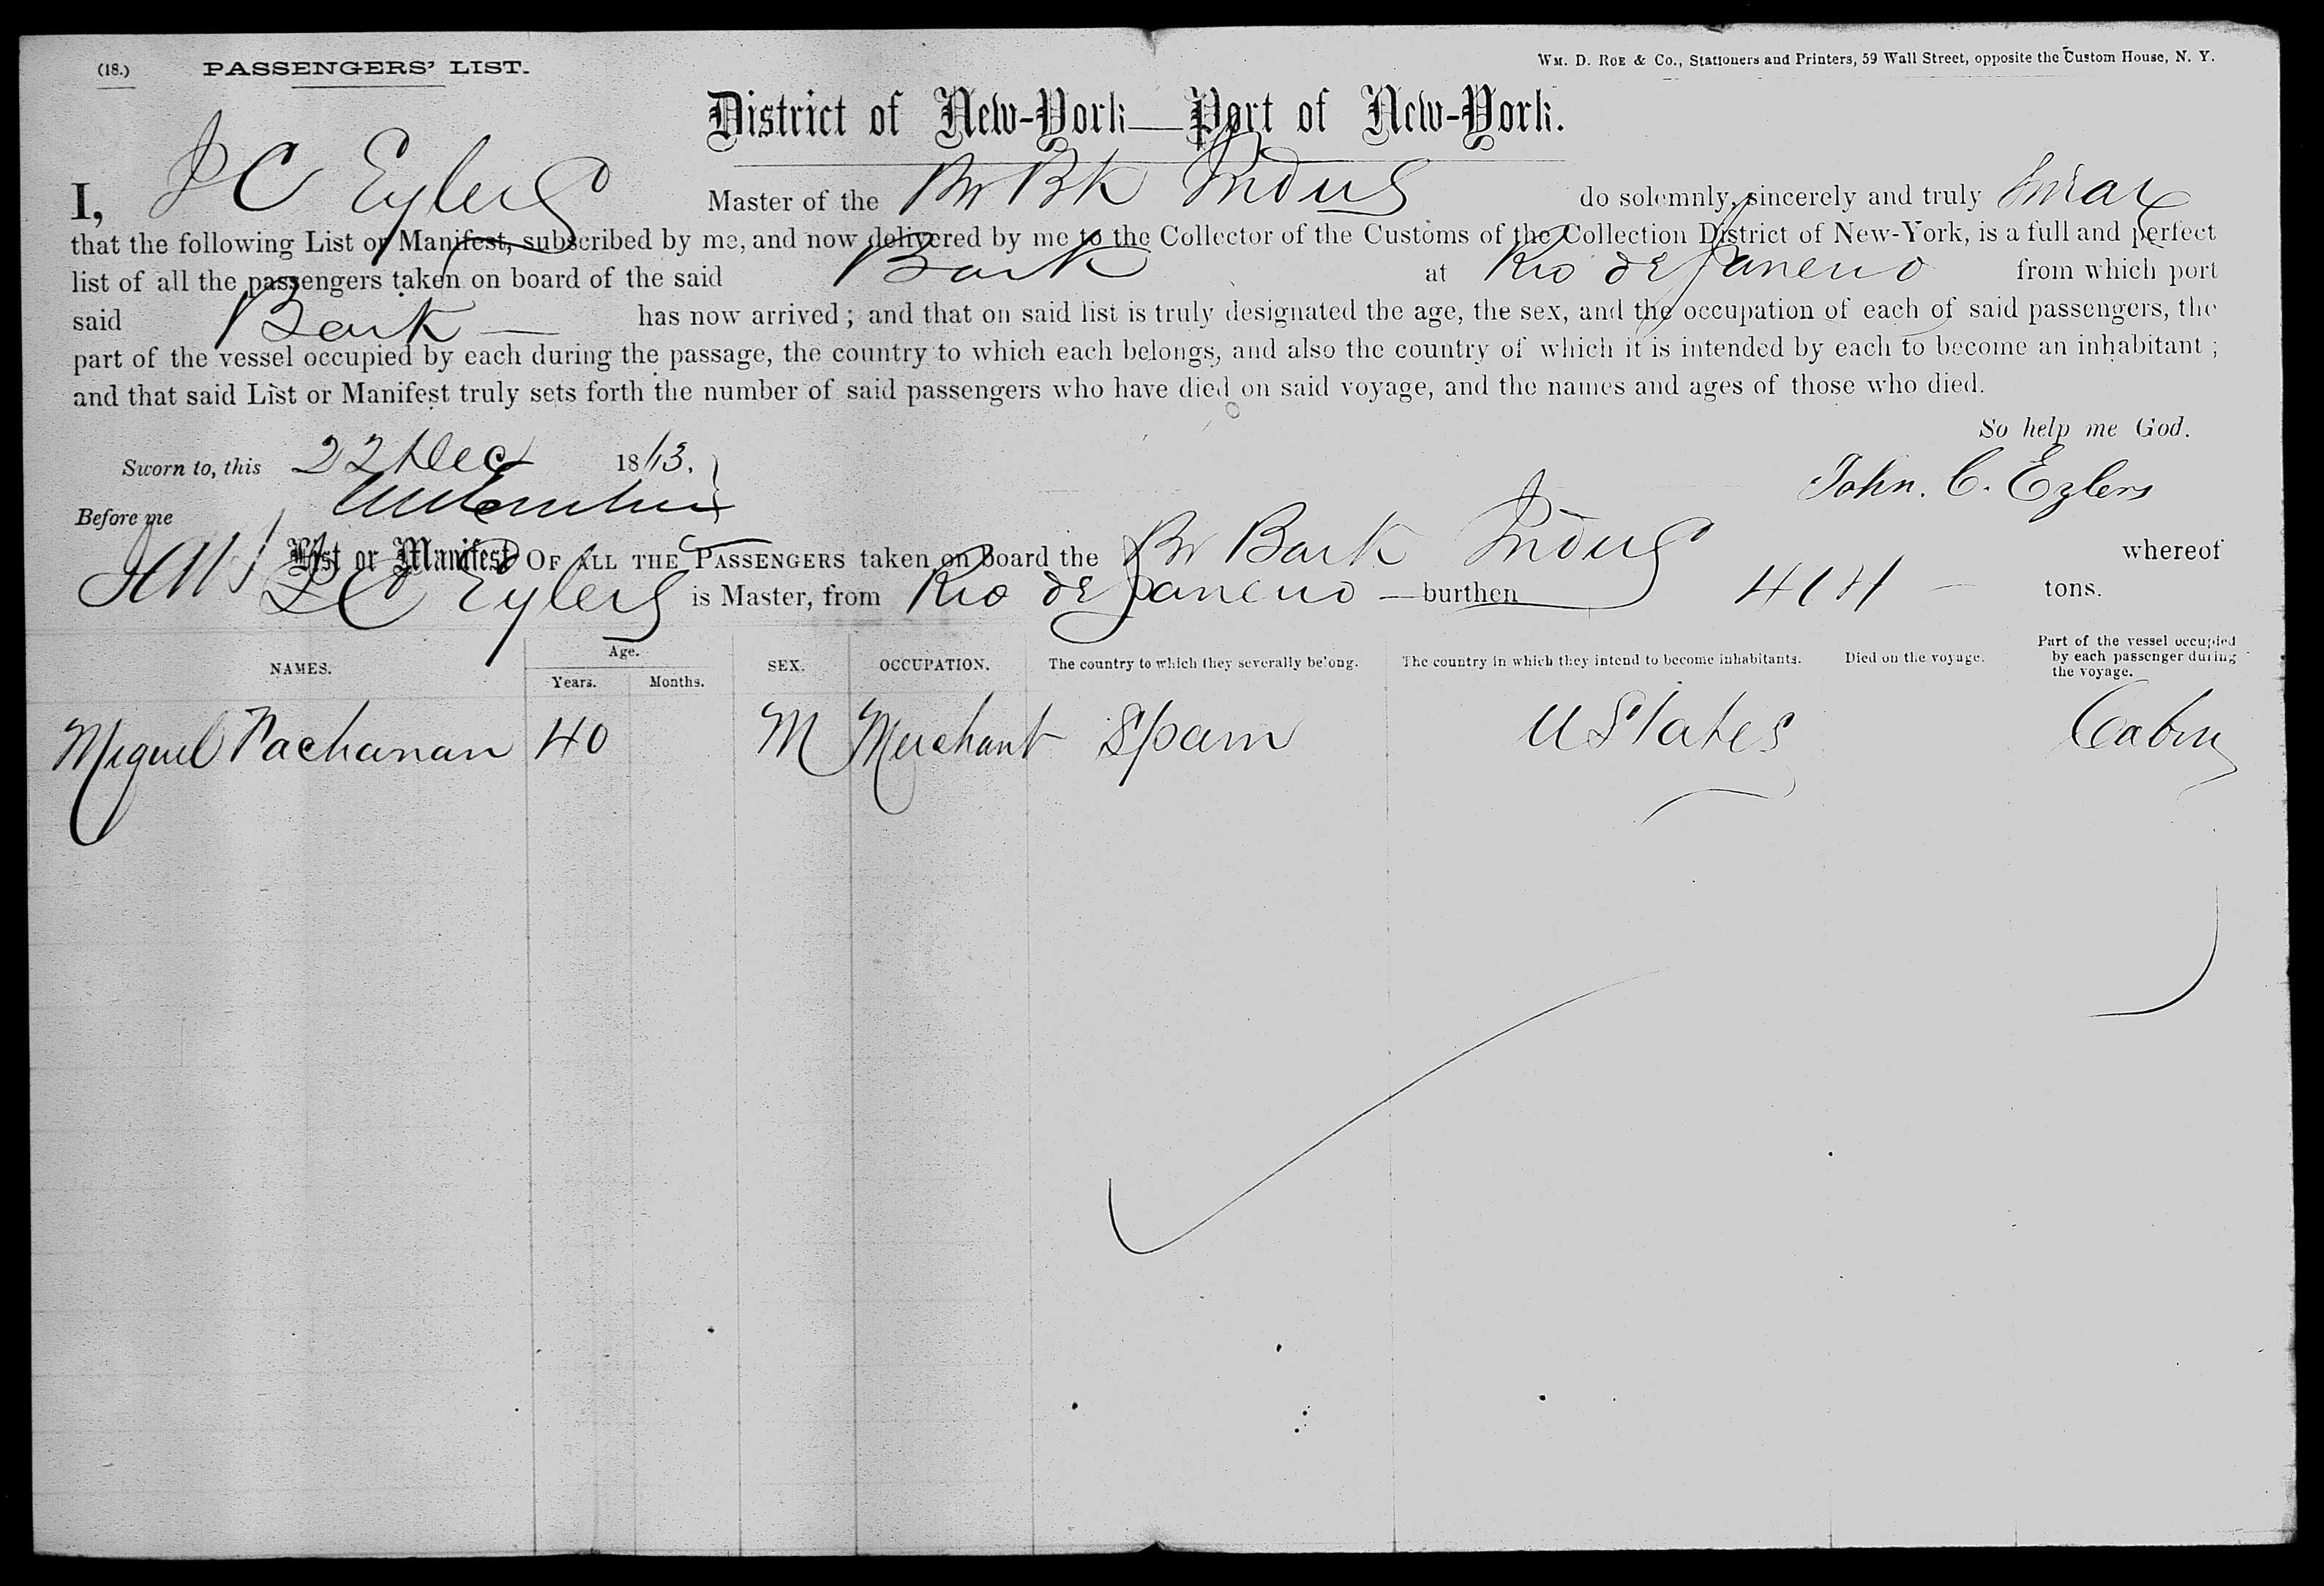 (18.) PASSENGERS' LIST. WM. D. ROE & Co., Stationers and Printers, 59 Wall Street, opposite the Custom House, N. Y.
District of New-York—Port of New-York.
I, J C Eylers Master of the Br Bk Indus do solemnly, sincerely and truly swear
that the following List or Manifest, subscribed by me, and now delivered by me to the Collector of the Customs of the Collection District of New-York, is a full and perfect
list of all the passengers taken on board of the said Bark at Rio de Janeiro from which port
said Bark — has now arrived; and that on said list is truly designated the age, the sex, and the occupation of each of said passengers, the
part of the vessel occupied by each during the passage, the country to which each belongs, and also the country of which it is intended by each to become an inhabitant;
and that said List or Manifest truly sets forth the number of said passengers who have died on said voyage, and the names and ages of those who died.
So help me God.
Sworn to, this 22 Dec 1863.
John. C. Eylers
Before me
List or Manifest OF ALL THE PASSENGERS taken on board the Br Bark Indus whereof
J C Eylers is Master, from Rio de Janeiro — burthen 414 — tons.
NAMES. Age. Years. Months. SEX. OCCUPATION. The country to which they severally belong. The country in which they intend to become inhabitants. Died on the voyage. Part of the vessel occupied by each passenger during the voyage.
Miguel Pachanan 40 M Merchant Spain U States Cabin